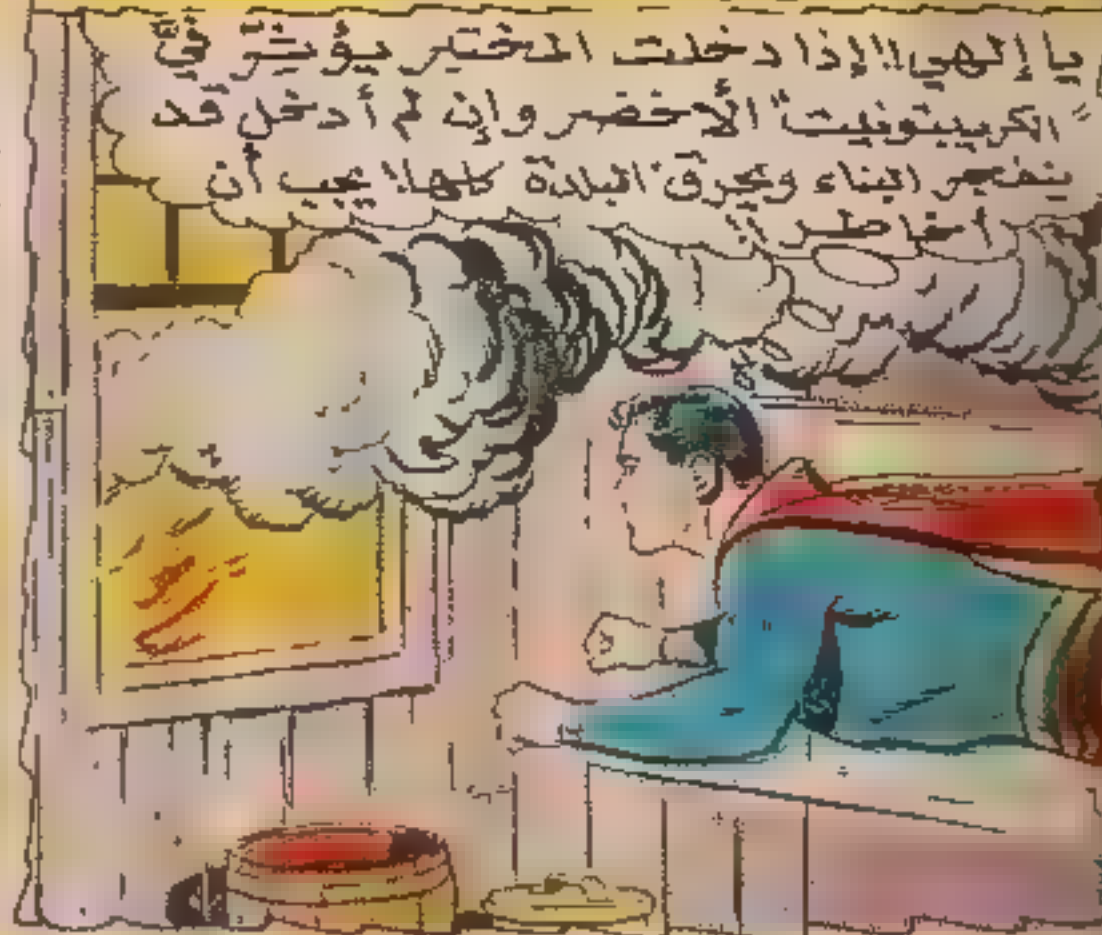 يا إلهي!! إذا دخلت المختبر يؤثر فيّ
"الكريبتونيت" الأخضر وإن لم أدخل قد
ينفجر البناء ويحرق البلدة كلها! يجب أن
أخاطر!!